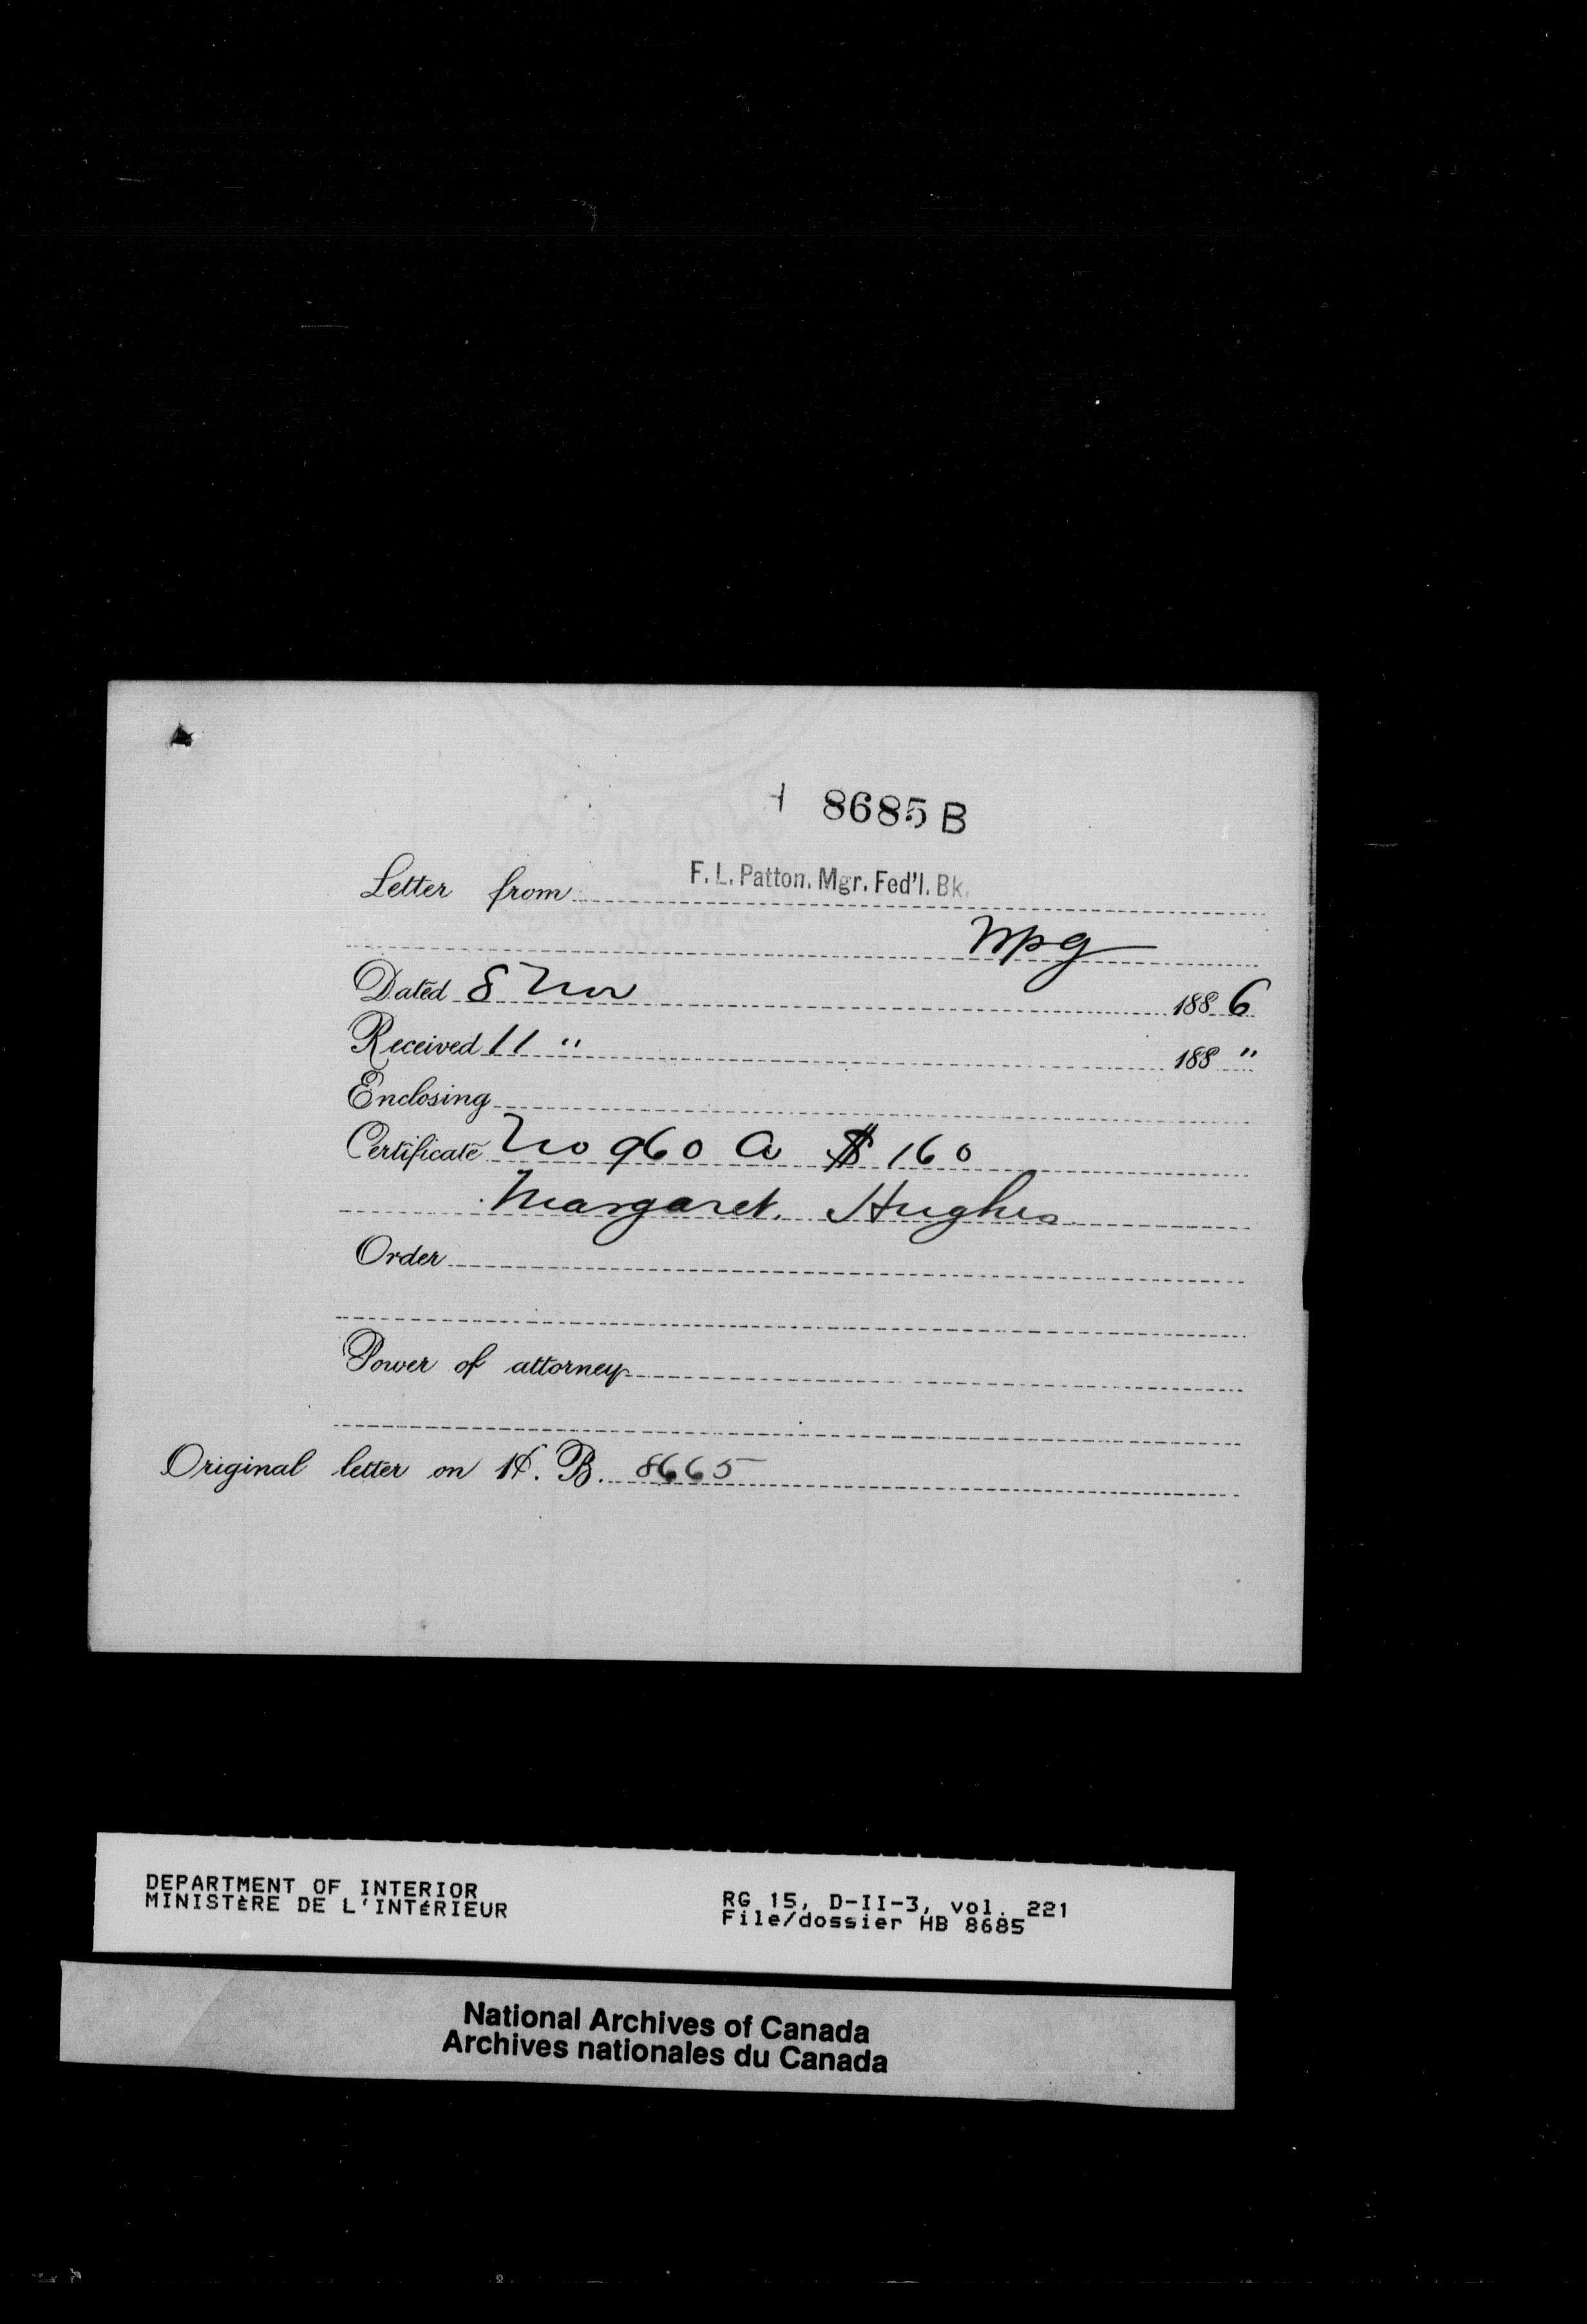 8685 B
Letter from F. L. Patton. Mgr. Fed'l. Bk.
Wpg
Dated 8 Nov 1886
Received 11 " 188 "
Enclosing
Certificate No 960 A $ 160
Margaret. Hughes
Order
Power of attorney
Original letter on H. B. 8665
DEPARTMENT OF INTERIOR
MINISTÈRE DE L'INTÉRIEUR
RG 15, D-II-3, vol. 221
File/dossier HB 8685
National Archives of Canada
Archives nationales du Canada